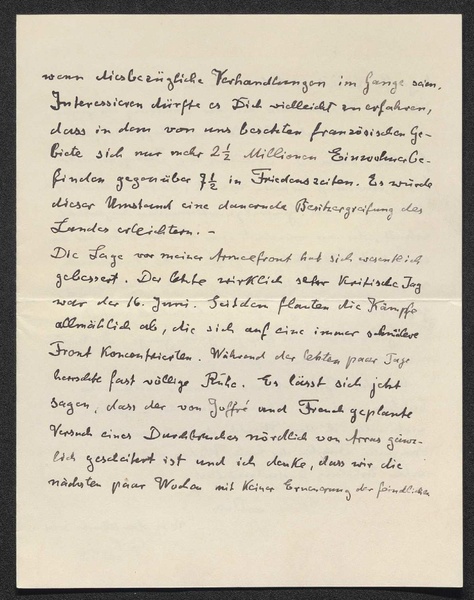 wenn diesbezügliche Verhandlungen im Gange seien.
Interessieren dürfte es Dich vielleicht zu erfahren,
dass in dem von uns besetzten französischen Ge-
biete sich nur mehr 2½ Millionen Einwohner be-
finden gegenüber 7½ in Friedenszeiten. Es würde
dieser Umstand eine dauernde Besitzergreifung des
Landes erleichtern. –
Die Lage vor meiner Armeefront hat sich wesentlich
gebessert. Der letzte wirklich sehr kritische Tag
war der 16. Juni. Seitdem flauten die Kämpfe
allmählich ab, die sich auf eine immer schmälere
Front konzentrierten. Während der letzten paar Tage
herrschte fast völlige Ruhe. Es lässt sich jetzt
sagen, dass der von Joffré und French geplante
Versuch eines Durchbruches nördlich von Arras gänz-
lich gescheitert ist und ich denke, dass wir die
nächsten paar Wochen mit keiner Erneuerung der feindlichen